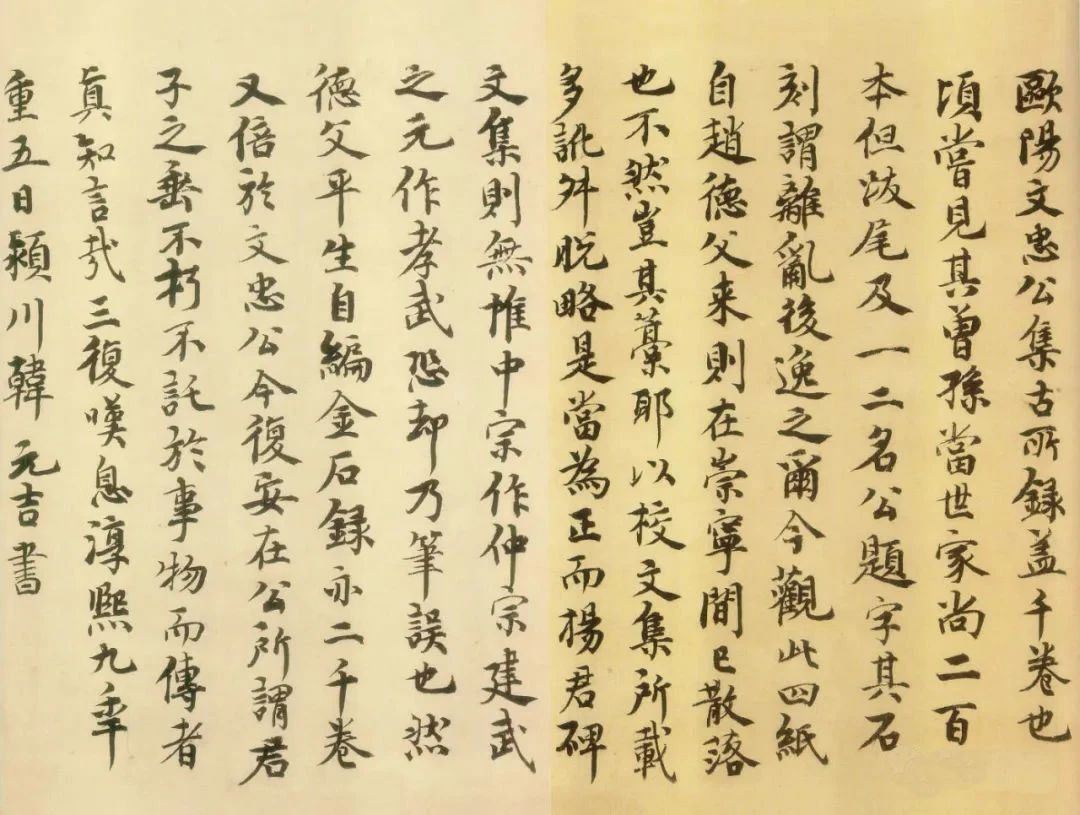 歐陽文忠公集古所録盖千卷也
頃嘗見其曾孫當世家尚二百
本但跋尾及一二名公題字其石
刻謂離亂後逸之爾今觀此四紙
自趙德父来則在崇寧間已散落
也不然豈其藁耶以校文集所載
多訛舛脱略是當為正而楊君碑
文集則無惟中宗作仲宗建武
之元作孝武恐却乃筆誤也然
德父平生自編金石録亦二千卷
又倍於文忠公今復妄在公所謂君
子之垂不朽不託於事物而傳者
真知言哉三復嘆息淳熙九年
重五日潁川韓元吉書